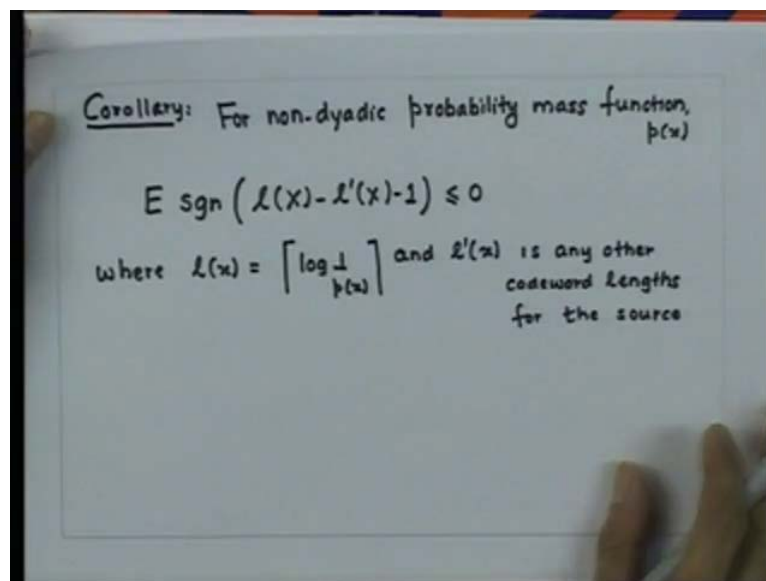 Corollary: For non-dyadic probability mass function,
p(x)
E sgn (l(X) - l'(X) - 1) ≤ 0
where l(x) = ⌈log 1/p(x)⌉ and l'(x) is any other
codeword lengths
for the source